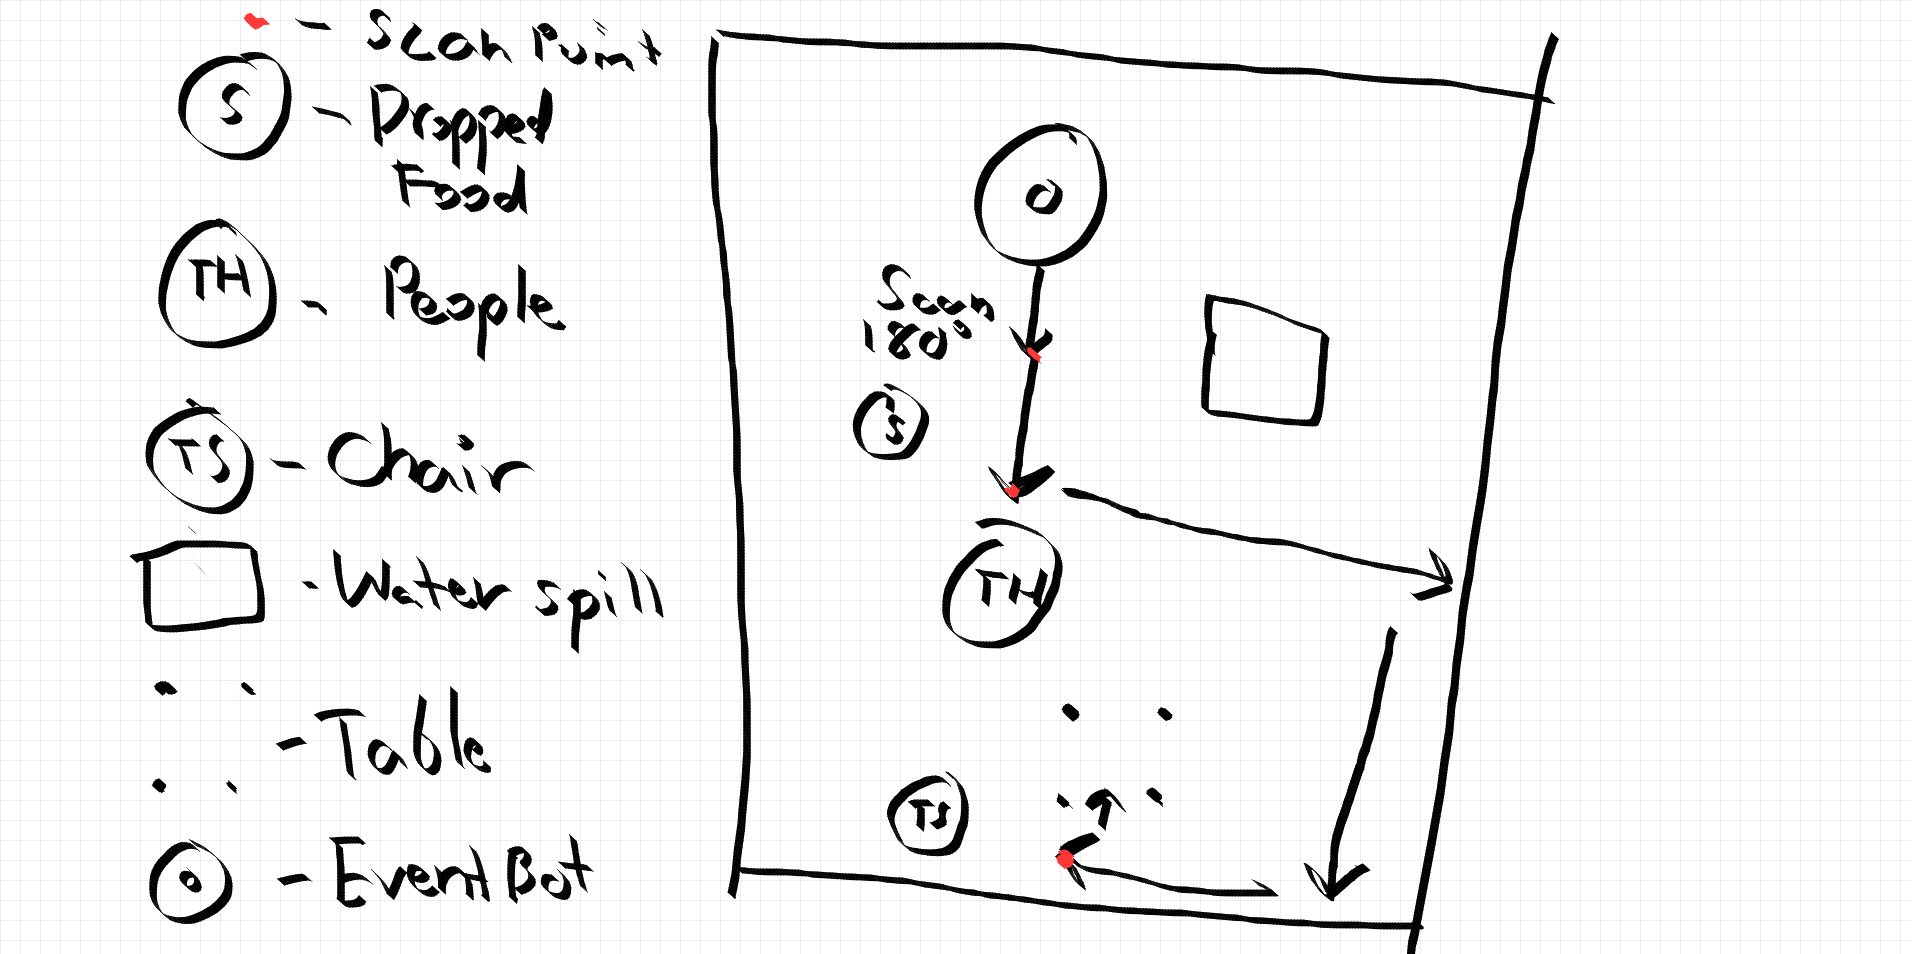 - Scan Point
S - Dropped
Food
TH - People
TS - Chair
- Water spill
- Table
O - EventBot
O
Scan
180°
S
TH
TS